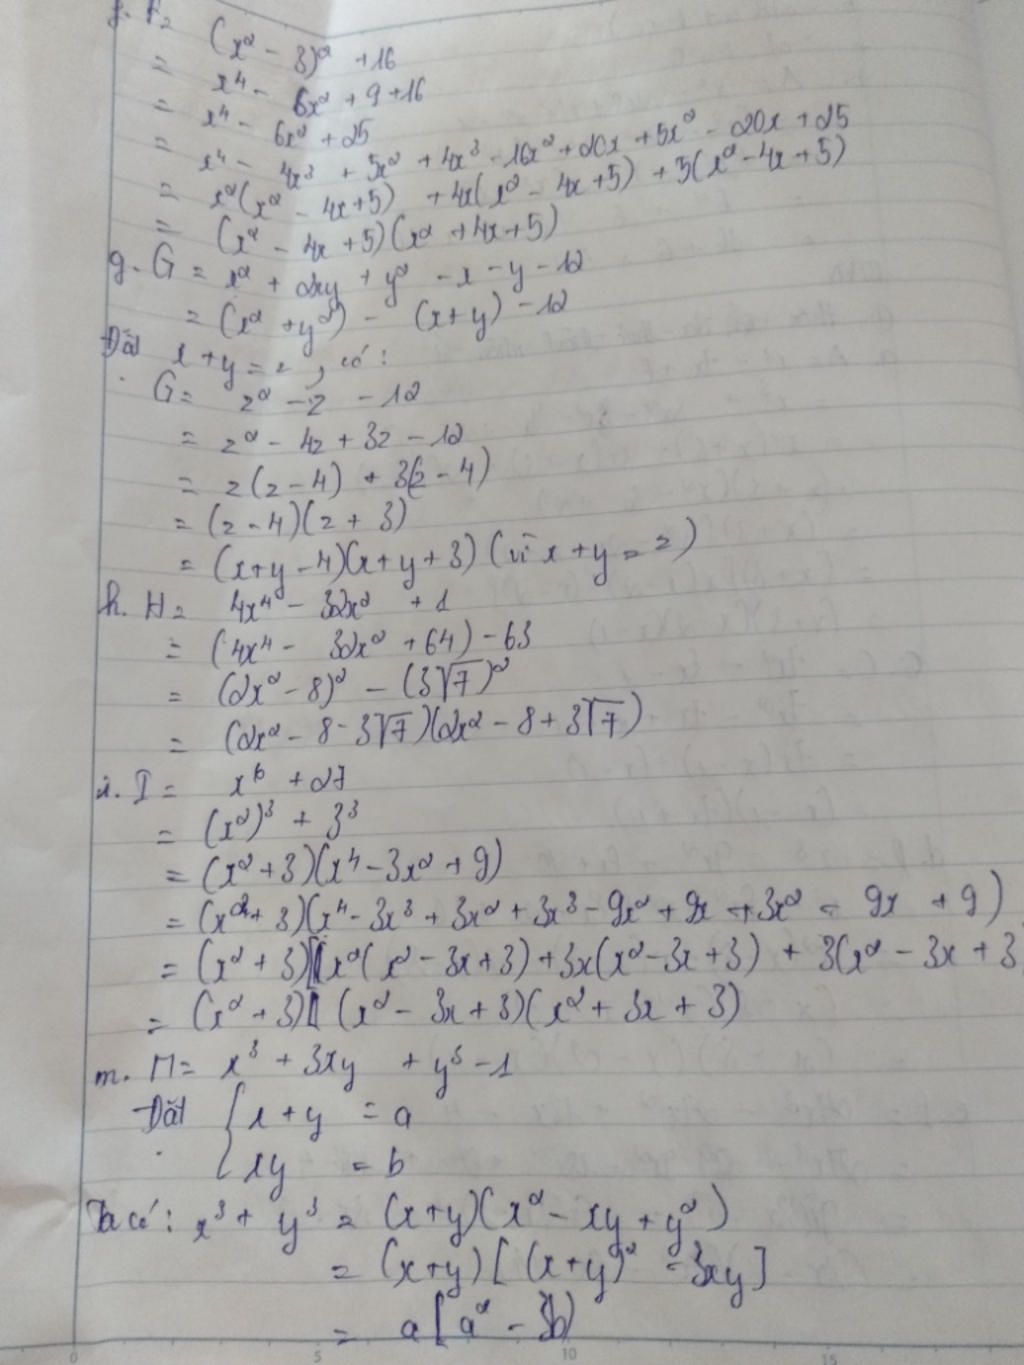 f. F =
(x² - 3)² + 16
= x⁴ - 6x² + 9 + 16
= x⁴ - 6x² + 25
= x⁴ - 4x³ + 5x² + 4x³ - 16x² + 20x + 5x² - 20x + 25
= x²(x² - 4x + 5) + 4x(x² - 4x + 5) + 5(x² - 4x + 5)
= (x² - 4x + 5)(x² + 4x + 5)
g. G = x² + 2xy + y² - x - y - 12
= (x² + y²) - (x + y) - 12
Đặt x + y = z, có:
G = z² - z - 12
= z² - 4z + 3z - 12
= z(z - 4) + 3(z - 4)
= (z - 4)(z + 3)
= (x + y - 4)(x + y + 3) (vì x + y = z)
h. H = 4x⁴ - 32x² + 1
= (4x⁴ - 32x² + 64) - 63
= (2x² - 8)² - (3√7)²
= (2x² - 8 - 3√7)(2x² - 8 + 3√7)
i. I = x⁶ + 27
= (x²)³ + 3³
= (x² + 3)(x⁴ - 3x² + 9)
= (x² + 3)(x⁴ - 3x³ + 3x² + 3x³ - 9x² + 9x + 3x² - 9x + 9)
= (x² + 3)[x²(x² - 3x + 3) + 3x(x² - 3x + 3) + 3(x² - 3x + 3
= (x² + 3)[(x² - 3x + 3)(x² + 3x + 3)
m. M = x³ + 3xy + y³ - 1
Đặt { x + y = a
xy = b
Ta có: x³ + y³ = (x + y)(x² - xy + y²)
= (x + y)[(x + y)² - 3xy]
= a[a² - 3b)
0 5 10 15